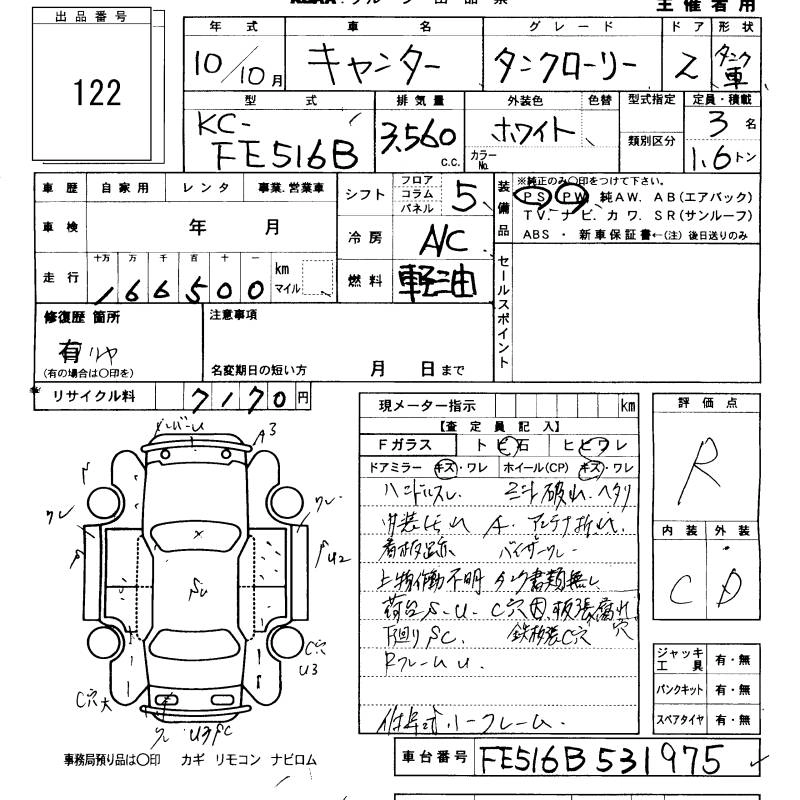 主催者用
出品番号
122
年式 車名 グレード ドア 形状
10/10月 キャンター タンクローリー 2 タンク車
型式 排気量 外装色 色替 型式指定 定員・積載
KC-FE516B 3,560 c.c. ホワイト カラーNo. 類別区分 3名 1.6トン
車歴 自家用 レンタ 事業.営業車
車検 年 月
走行 十万 万 千 百 十 一 km マイル
166500
シフト フロア コラム パネル 5
冷房 A/C
燃料 軽油
装備品
※純正のみ〇印をつけて下さい。
PS PW 純AW. AB(エアバック)
TV. ナビ. カワ. SR(サンルーフ)
ABS ・ 新車保証書←(注) 後日送りのみ
セールスポイント
修復歴 箇所
有 リヤ
(有の場合は〇印を)
注意事項
名変期日の短い方 月 日まで
リサイクル料 7170円
現メーター指示 km
【査定員記入】
Fガラス トビ石 ヒビワレ
ドアミラー キズ・ワレ ホイール(CP) キズ・ワレ
ハンドルスレ ミラー破れ.ヘタリ
内装ヨゴレ A. アンテナ折れ.
看板跡 バイザーワレ
上物作動不明 タンク書類無し
荷台S.U.C穴 因.板張腐れ穴
下廻りSC. 鉄板張C穴
RフレームU.
評価点
R
内装 外装
C D
ジャッキ工具 有・無
パンクキット 有・無
スペアタイヤ 有・無
A3
ワレ
U2
C穴
U3
C穴大
U3 SC
事務局預り品は〇印 カギ リモコン ナビロム
車台番号 FE516B 531975